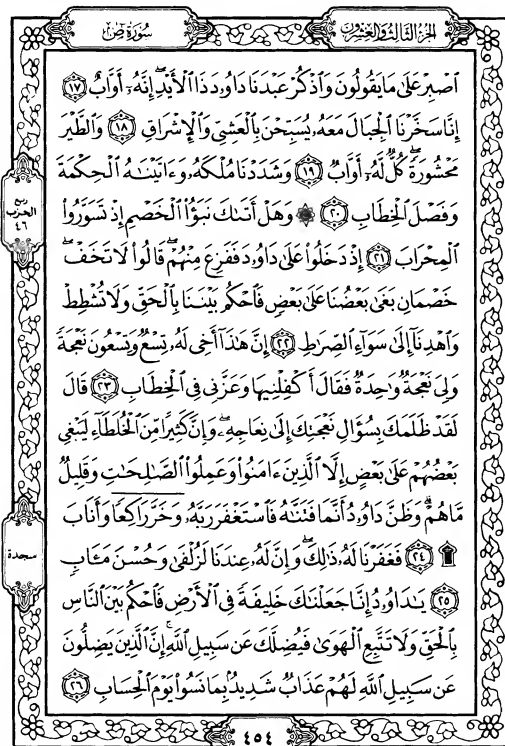 الجزء الثالث والعشرون
سورة ص
ٱصۡبِرۡ عَلَىٰ مَا يَقُولُونَ وَٱذۡكُرۡ عَبۡدَنَا دَاوُۥدَ ذَا ٱلۡأَيۡدِۖ إِنَّهُۥٓ أَوَّابٌ ۝١٧
إِنَّا سَخَّرۡنَا ٱلۡجِبَالَ مَعَهُۥ يُسَبِّحۡنَ بِٱلۡعَشِيِّ وَٱلۡإِشۡرَاقِ ۝١٨ وَٱلطَّيۡرَ
مَحۡشُورَةٗۖ كُلّٞ لَّهُۥٓ أَوَّابٞ ۝١٩ وَشَدَدۡنَا مُلۡكَهُۥ وَءَاتَيۡنَٰهُ ٱلۡحِكۡمَةَ
وَفَصۡلَ ٱلۡخِطَابِ ۝٢٠ ۞ وَهَلۡ أَتَىٰكَ نَبَؤُاْ ٱلۡخَصۡمِ إِذۡ تَسَوَّرُواْ
ٱلۡمِحۡرَابَ ۝٢١ إِذۡ دَخَلُواْ عَلَىٰ دَاوُۥدَ فَفَزِعَ مِنۡهُمۡۖ قَالُواْ لَا تَخَفۡۖ
خَصۡمَانِ بَغَىٰ بَعۡضُنَا عَلَىٰ بَعۡضٖ فَٱحۡكُم بَيۡنَنَا بِٱلۡحَقِّ وَلَا تُشۡطِطۡ
وَٱهۡدِنَآ إِلَىٰ سَوَآءِ ٱلصِّرَٰطِ ۝٢٢ إِنَّ هَٰذَآ أَخِي لَهُۥ تِسۡعٞ وَتِسۡعُونَ نَعۡجَةٗ
وَلِيَ نَعۡجَةٞ وَٰحِدَةٞ فَقَالَ أَكۡفِلۡنِيهَا وَعَزَّنِي فِي ٱلۡخِطَابِ ۝٢٣ قَالَ
لَقَدۡ ظَلَمَكَ بِسُؤَالِ نَعۡجَتِكَ إِلَىٰ نِعَاجِهِۦۖ وَإِنَّ كَثِيرٗا مِّنَ ٱلۡخُلَطَآءِ لَيَبۡغِي
بَعۡضُهُمۡ عَلَىٰ بَعۡضٍ إِلَّا ٱلَّذِينَ ءَامَنُواْ وَعَمِلُواْ ٱلصَّٰلِحَٰتِ وَقَلِيلٞ
مَّا هُمۡۗ وَظَنَّ دَاوُۥدُ أَنَّمَا فَتَنَّٰهُ فَٱسۡتَغۡفَرَ رَبَّهُۥ وَخَرَّۤ رَاكِعٗاۤ وَأَنَابَ
۩ ۝٢٤ فَغَفَرۡنَا لَهُۥ ذَٰلِكَۖ وَإِنَّ لَهُۥ عِندَنَا لَزُلۡفَىٰ وَحُسۡنَ مَـَٔابٖ
۝٢٥ يَٰدَاوُۥدُ إِنَّا جَعَلۡنَٰكَ خَلِيفَةٗ فِي ٱلۡأَرۡضِ فَٱحۡكُم بَيۡنَ ٱلنَّاسِ
بِٱلۡحَقِّ وَلَا تَتَّبِعِ ٱلۡهَوَىٰ فَيُضِلَّكَ عَن سَبِيلِ ٱللَّهِۚ إِنَّ ٱلَّذِينَ يَضِلُّونَ
عَن سَبِيلِ ٱللَّهِ لَهُمۡ عَذَابٞ شَدِيدُۢ بِمَا نَسُواْ يَوۡمَ ٱلۡحِسَابِ ۝٢٦
ربع
الحزب
٤٦
سجدة
٤٥٤